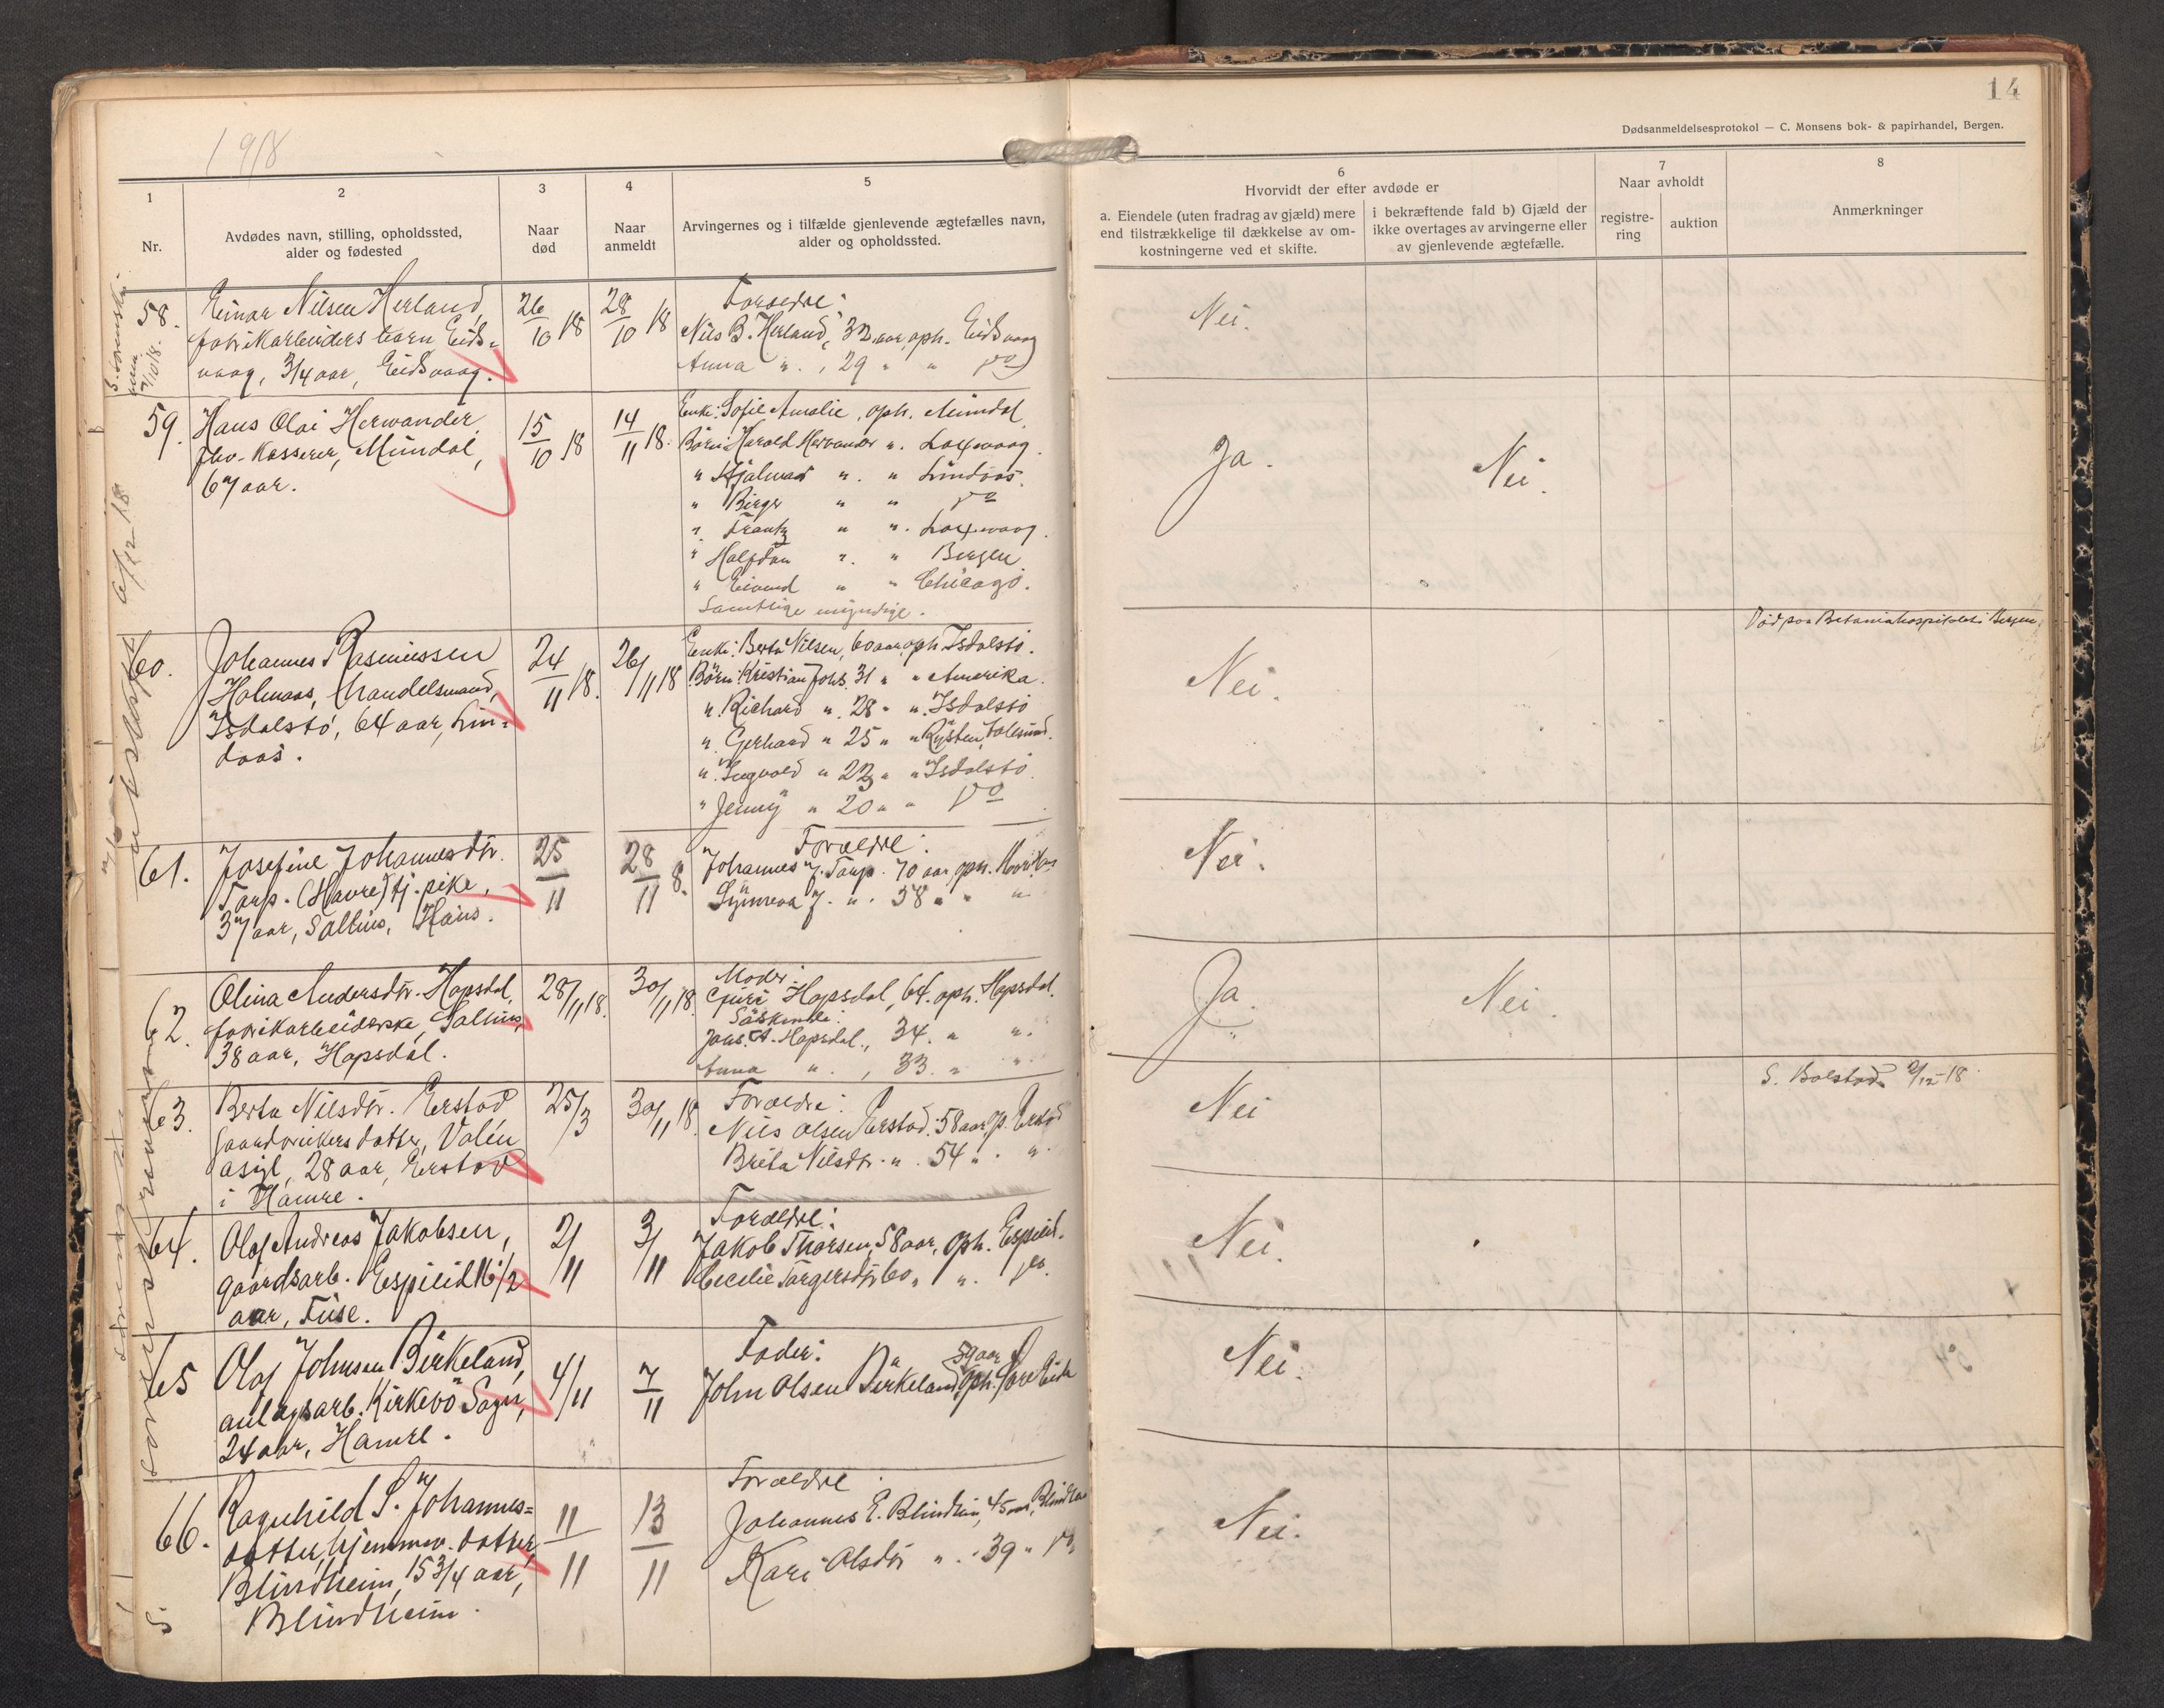 14
Dødsanmeldelsesprotokol — C. Monsens bok- & papirhandel, Bergen.
1918
1
Nr.
2
Avdødes navn, stilling, opholdssted,
alder og fødested
3
Naar
død
4
Naar
anmeldt
5
Arvingernes og i tilfælde gjenlevende ægtefælles navn,
alder og opholdssted.
6
Hvorvidt der efter avdøde er
a. Eiendele (uten fradrag av gjæld) mere
end tilstrækkelige til dækkelse av om-
kostningerne ved et skifte.
i bekræftende fald b) Gjæld der
ikke overtages av arvingerne eller
av gjenlevende ægtefælle.
7
Naar avholdt
registre-
ring
auktion
8
Anmerkninger
58.
Einar Nilsen Herland,
fabrikarbeiders barn Eids-
vaag, 3/4 aar, Eidsvaag.
26/10 18
28/10 18
Forældre:
Nils B. Herland, 32 aar, oph. Eidsvaag
Anna " , 29 " " do
Nei.
59.
Hans Olai Herwander,
fhv. Kasserer, Mundal,
67 aar.
15/10 18
14/11 18.
Enke: Sofie Amalie, oph. Mundal
Børn: Harald Herwander " Laxevaag.
" Hjalmar " " Lindaas.
" Birger " " do
" Frantz " " Laxevaag.
" Halfdan " " Bergen
" Eivind " " Chicago.
Samtlige myndige.
Ja.
Nei.
60.
Johannes Rasmussen
Holmaas, handelsmand,
Isdalstø, 64 aar, Lin-
daas.
24/11 18.
26/11 18
Enke: Berta Nilsen, 60 aar, oph. Isdalstø.
Børn: Kristian Johs. 31 " " Amerika.
" Richard " 28 " " Isdalstø
" Gerhard " 25 "
" Ingvald " 22 " " Isdalstø.
" Jenny " 20 " " do
Nei.
Død paa Betaniahospitalet i Bergen
61.
Josefine Johannesdtr.
Tarp. (Havre) tj. pike,
37 aar, Salhus, Haus.
25/11
28/11 8.
Forældre:
Johannes J. Tarp. 70 aar, oph.
Synneva J. " 58 " " "
Nei.
62.
Olina Andersdtr. Hopsdal,
fabrikarbeiderske, Salhus,
38 aar, Hopsdal.
28/11 18.
30/11 18.
Moder:
Guri Hopsdal, 64. oph. Hopsdal.
Søskende:
Johs. A. Hopsdal., 34. " "
Anna " , 33. " "
Ja.
Nei.
63.
Berta Nilsdtr. Erstad
gaardbrukers datter, Valen
asyl, 28 aar, Erstad
i Hamre.
25/3
30/11 18.
Forældre:
Nils Olsen Erstad. 58 aar, op. Erstad
Brita Nilsdtr. " 54 " " "
Nei
S. Bolstad. 2/12-18
64.
Olaf Andreas Jakobsen,
gaardsarb. Espeid 16 1/2
aar, Fuse.
2/11
3/11
Forældre:
Jakob Thorsen, 58 aar, oph. Espeid.
Cecilie Torgersdtr, 60 " " do.
Nei.
65
Olaf Johnsen Birkeland,
anlægsarb. Kirkebø Sogn,
24 aar, Hamre.
4/11
7/11
Fader:
59 aar
John Olsen Birkeland, oph.
Nei.
66.
Ragnhild S. Johannes-
datter, hjemmev. datter,
Blindheim, 15 3/4 aar,
Blindheim.
11/11
13/11
Forældre
Johannes E. Blindheim, 45 aar, Blindheim
Kari Olsdtr " 39 " do
Nei.